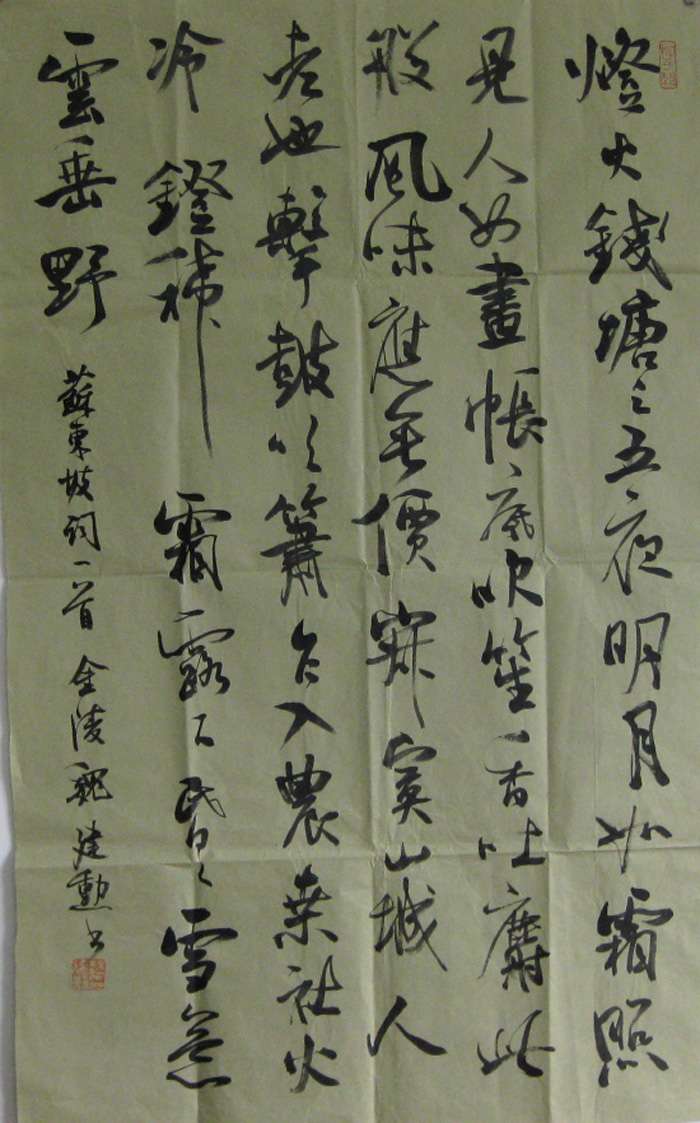 燈火錢塘三五夜明月如霜照
見人如畫帳底吹笙香吐麝此
般風味應無價寂寞山城人
老也擊鼓吹簫乍入農桑社火
冷鐙稀霜露下昏々雪意
雲垂野
蘇東坡詞一首 金陵魏建勳書